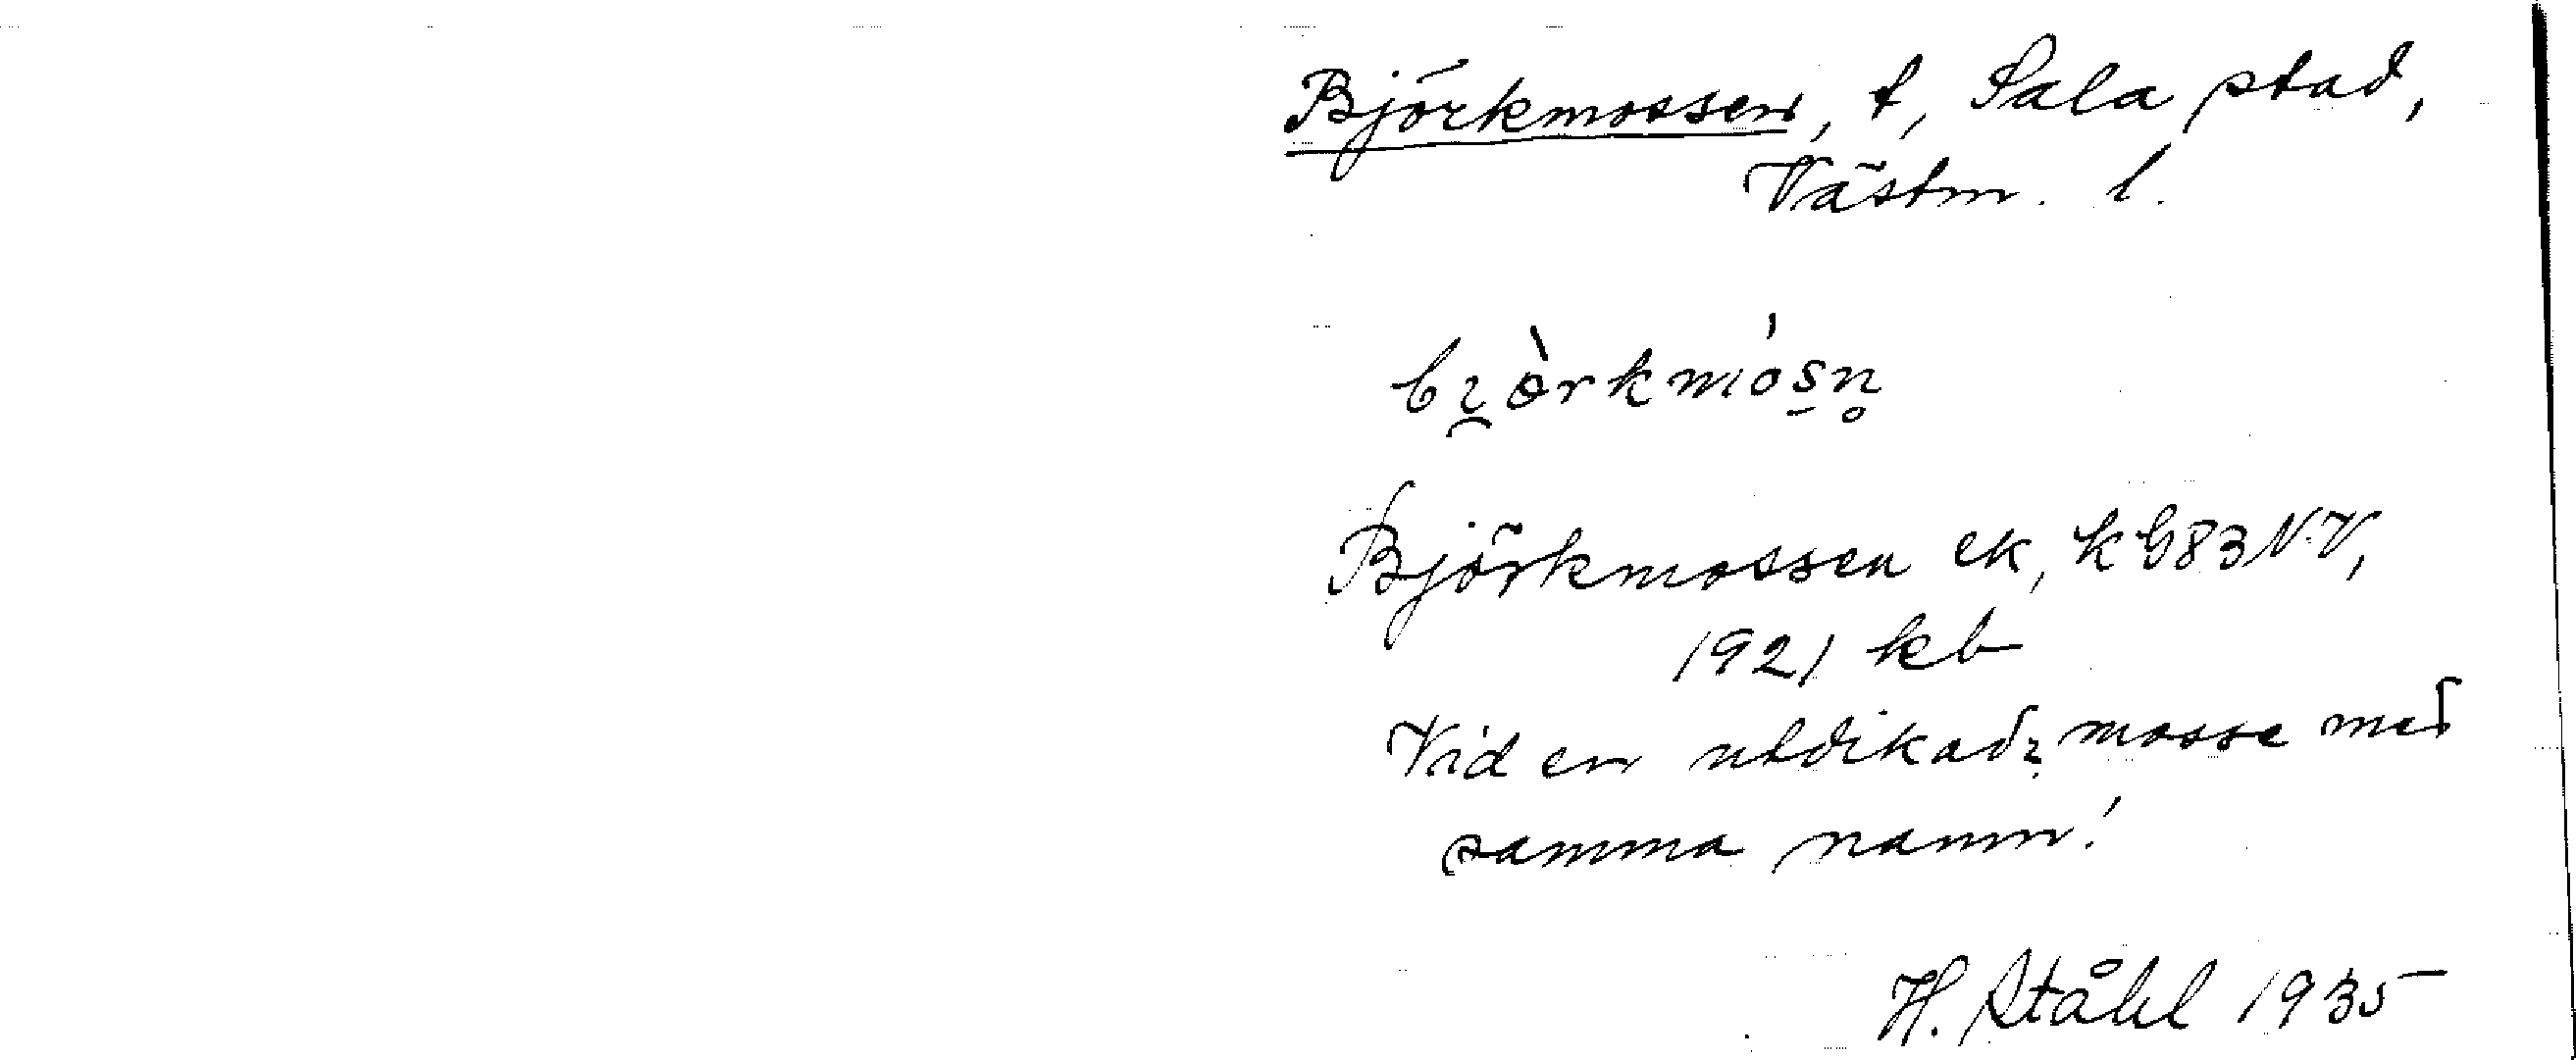 Björkmossen, t, Sala stad,
Västm. l.
bi̯òrkmós̠n̥
Björkmossen ek, k G83NV,
1921 kb
Vid en utdikad mosse med
samma namn!
H. Ståhl 1935